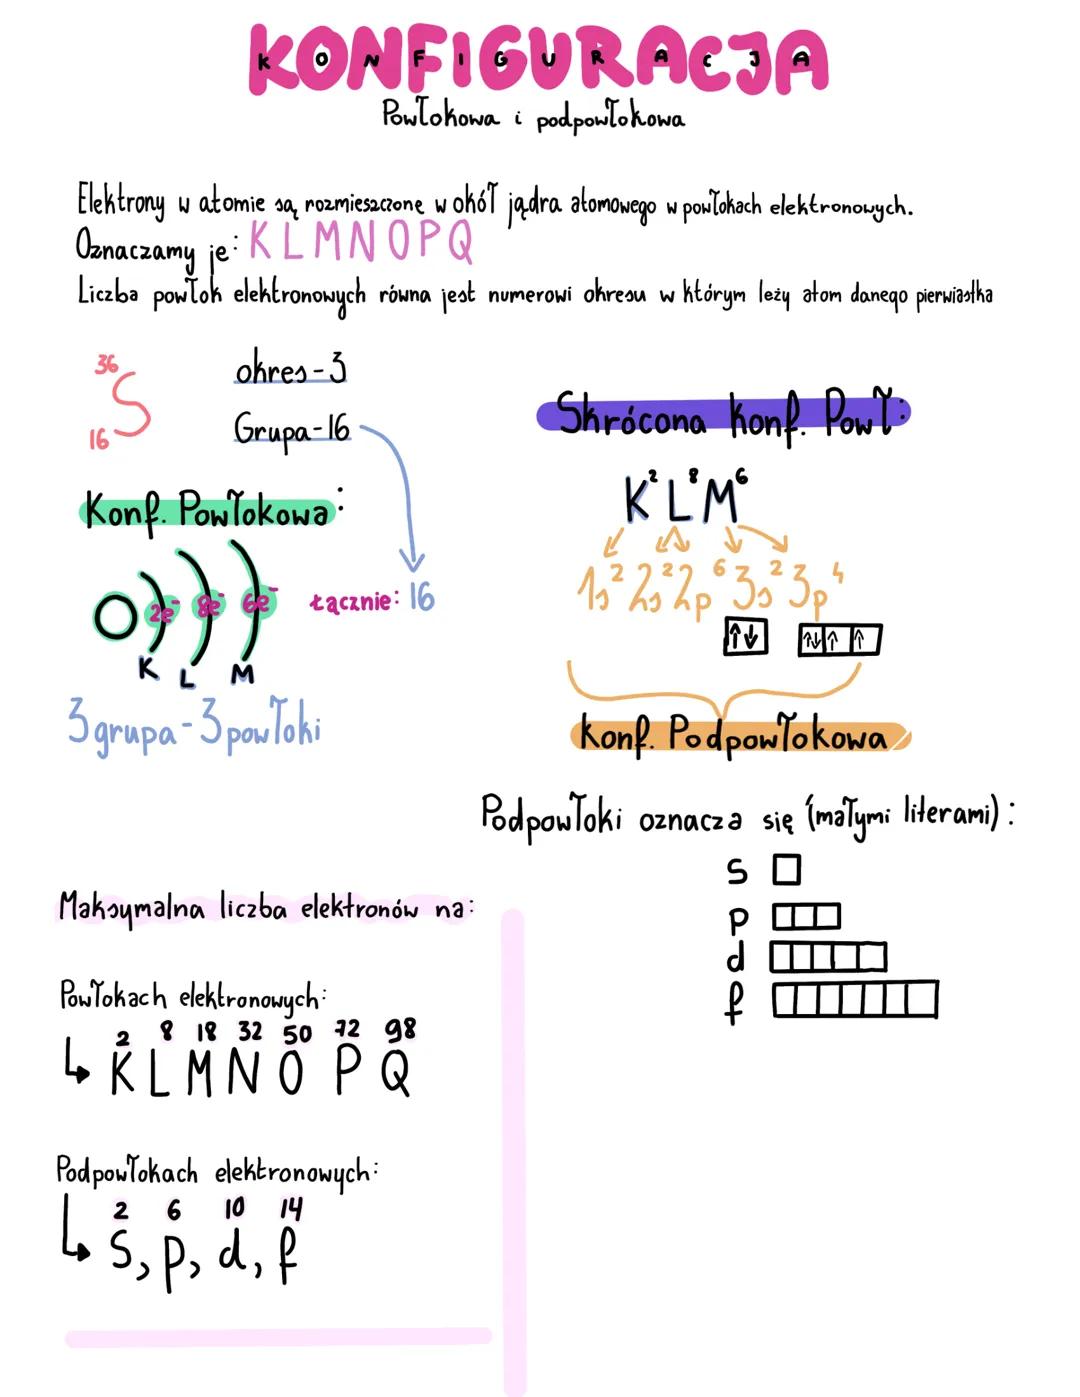 KONFIGURACJA
Powłokowa i podpowłokowa
Elektrony w atomie są rozmieszczone w okół jądra atomowego w powłokach elektronowych.
Oznaczamy je: K L M N O P Q
Liczba powłok elektronowych równa jest numerowi okresu w którym leży atom danego pierwiastka
36
S
16
okres-3
Grupa-16
Konf. Powłokowa:
2e⁻ 8e⁻ 6e⁻
K L M
Łącznie: 16
3 grupa - 3 powłoki
Skrócona konf. Powł:
K² L⁸ M⁶
1s² 2s² 2p⁶ 3s² 3p⁴
konf. Podpowłokowa
Podpowłoki oznacza się (małymi literami):
s
p
d
f
Maksymalna liczba elektronów na:
Powłokach elektronowych:
2 8 18 32 50 72 98
K L M N O P Q
Podpowłokach elektronowych:
2 6 10 14
s, p, d, f